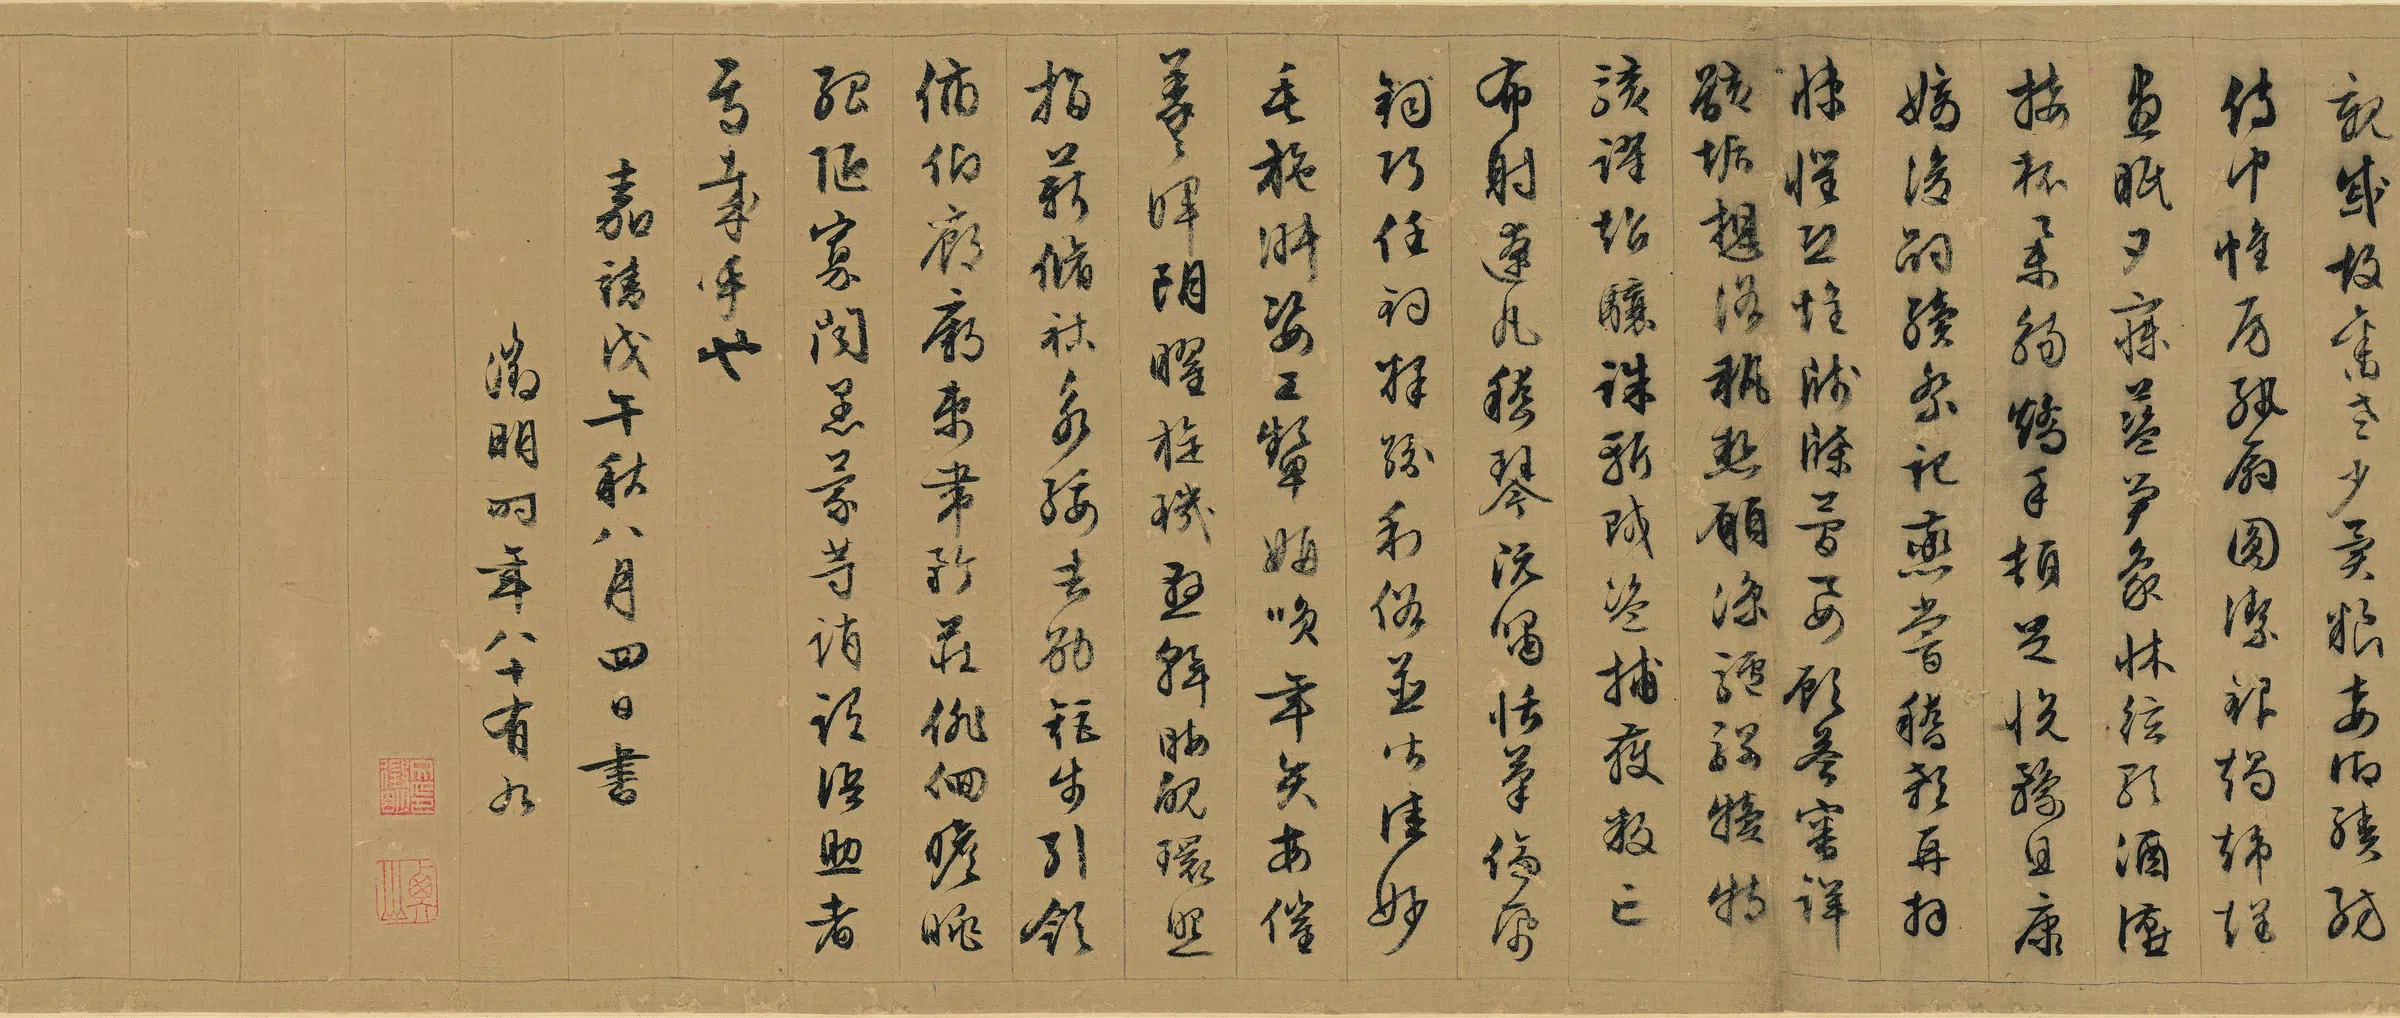 親戚故舊老少異糧妾御績紡
侍巾帷房紈扇圓潔銀燭煒煌
晝眠夕寐藍笋象床弦歌酒讌
接杯舉觴矯手頓足悅豫且康
嫡後嗣續祭祀蒸嘗稽顙再拜
悚懼恐惶牋牒簡要顧答審詳
骸垢想浴執熱願涼驢騾犢特
駭躍超驤誅斬賊盜捕獲叛亡
布射遼丸嵇琴阮嘯恬筆倫紙
鈞巧任釣釋紛利俗並皆佳妙
毛施淑姿工顰妍笑年矢每催
羲暉朗曜旋璣懸斡晦魄環照
指薪脩祜永綏吉劭矩步引領
俯仰廊廟束帶矜莊徘徊瞻眺
孤陋寡聞愚蒙等誚謂語助者
焉哉乎也
嘉靖戊午秋八月四日書
徵明時年八十有九